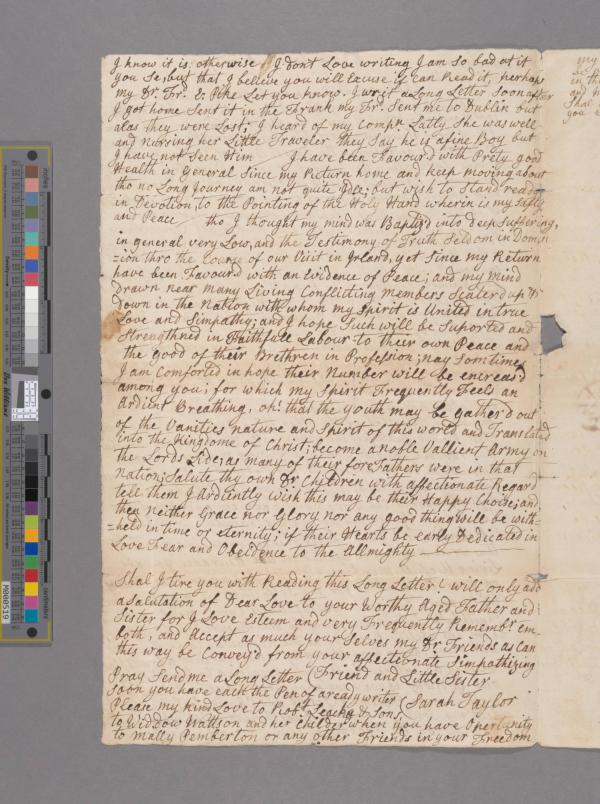 I know it is otherwise I dont Love writing I am so bad at it
you se, but that I believe you will Excuse if Can Read it, perhaps
my Dr. Fr. E: Pike Let you know. I writ a Long Letter soon after
I got home Sent it in the Frank my Fr. Sent me to Dublin but
alas they were Lost; I heard of my Compn. Latly She was well
and Nursing her Little Traveler they Say he is a fine Boy but
I have not Seen Him I have been Favour'd with Prety good
Health in General Since my Return home and keep moving about
tho no Long Journey am not quite Idle; but wish to Stand ready
in Devotion, to the Pointing of the Holy Hand wherein is my Safty
and Peace tho I thought my mind was Baptiz'd into deep Suffering,
in general very Low, and the Testimony of Truth Seldom in Domin
=ion thro the Course of our Visit in Irland, yet Since my Return
have been Favour'd with an Evidence of Peace; and my mind
drawn near many Living Conflicting Members Scaterd up &
down in the Nation with whom my Spirit is United in true
Love and Simpathy; and I hope Such will be Suported and
Strengthned in Faithfull Labour to their own Peace and
the good of their Brethren in Profession; nay Somtimes
I am Comforted in hope their Number will be encreas'd
among you; for which my Spirit Frequently Feels an
Ardient Breathing, oh! that the youth may be gather'd out
of the Vanities nature and Spirit of this world and Translated
into the Kingdome of Christ; become a noble Vallient Army on
the Lords Side; as many of their fore Fathers were in that
Nation; Salute thy own Dr Children with affectionate Regard
tell them I Ardiently wish this may be their Happy Choise; and
then Neither Grace nor Glory nor any good thing will be with-
=held in time or eternity; if their Hearts be early Dedicated in
Love Fear and Obedience to the Allmighty
Shal I tire you with Reading this Long Letter I will only add
a Salutation of Dear Love to your Worthy Aged Father and
Sister for I Love Esteem and very Frequently Remembr. em
both, and Accept as much your Selves my Dr Friends as Can
this way be Convey'd from your affectionate Simpathizing
Pray Send me a Long Letter (Friend and Little Sister
Soon you have each the Pen of a ready writer (Sarah Taylor
Please my kind Love to Robt. & Son
to Widdow Wattson and her Childer when you have Opertunity
to Mally Pemberton or any other Friends in your Freedom
my
in th
and
Shal
you
M000519